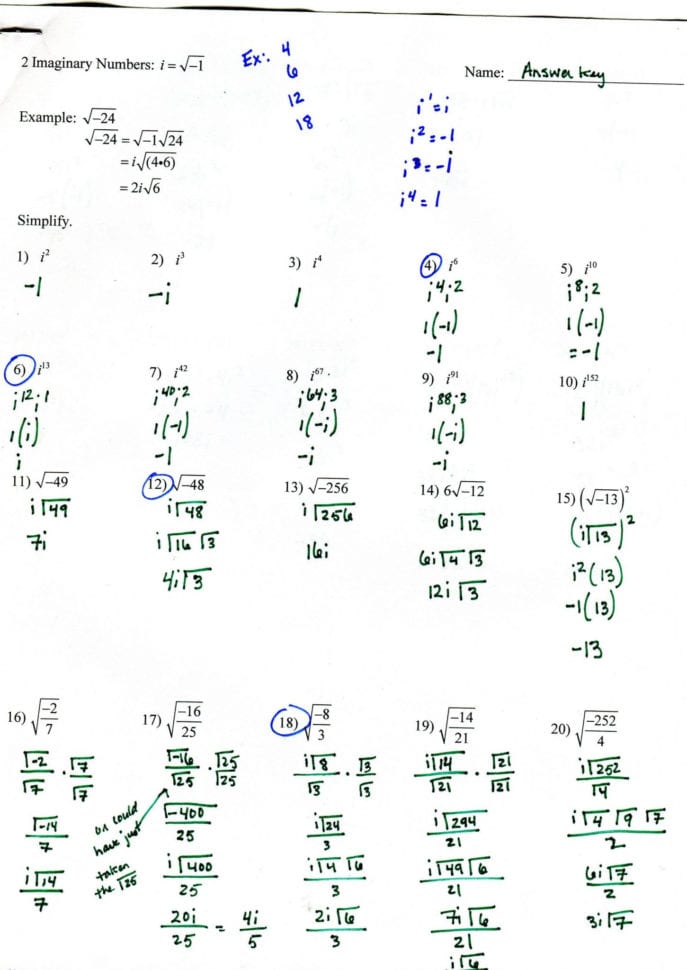 2 Imaginary Numbers: i = √-1
Ex: 4
6
12
18
Name: Answer key
i¹ = i
i² = -1
i³ = -i
i⁴ = 1
Example: √-24
√-24 = √-1√24
= i√(4•6)
= 2i√6
Simplify.
1) i²
-1
2) i³
-i
3) i⁴
1
4) i⁶
i⁴·i²
1(-1)
-1
5) i¹⁰
i⁸i²
1(-1)
= -1
6) i¹³
i¹²·i¹
1(i)
i
7) i⁴²
i⁴⁰·i²
1(-1)
-1
8) i⁶⁷
i⁶⁴·i³
1(-i)
-i
9) i⁹¹
i⁸⁸·i³
1(-i)
-i
10) i¹⁵²
1
11) √-49
i√49
7i
12) √-48
i√48
i√16 √3
4i√3
13) √-256
i√256
16i
14) 6√-12
6i√12
6i√4 √3
12i√3
15) (√-13)²
(i√13)²
i²(13)
-1(13)
-13
16) √(-2/7)
√-2/√7 · √7/√7
√-14/7
i√14/7
17) √(-16/25)
√-16/√25 · √25/√25
√-400/25
i√400/25
20i/25 = 4i/5
or could
have just
taken
the √25
18) √(-8/3)
i√8/√3 · √3/√3
i√24/3
i√4 √6/3
2i√6/3
19) √(-14/21)
i√14/√21 · √21/√21
i√294/21
i√49√6/21
7i√6/21
i√6
20) √(-252/4)
i√252/√4
i√4 √9 √7/2
6i√7/2
3i√7